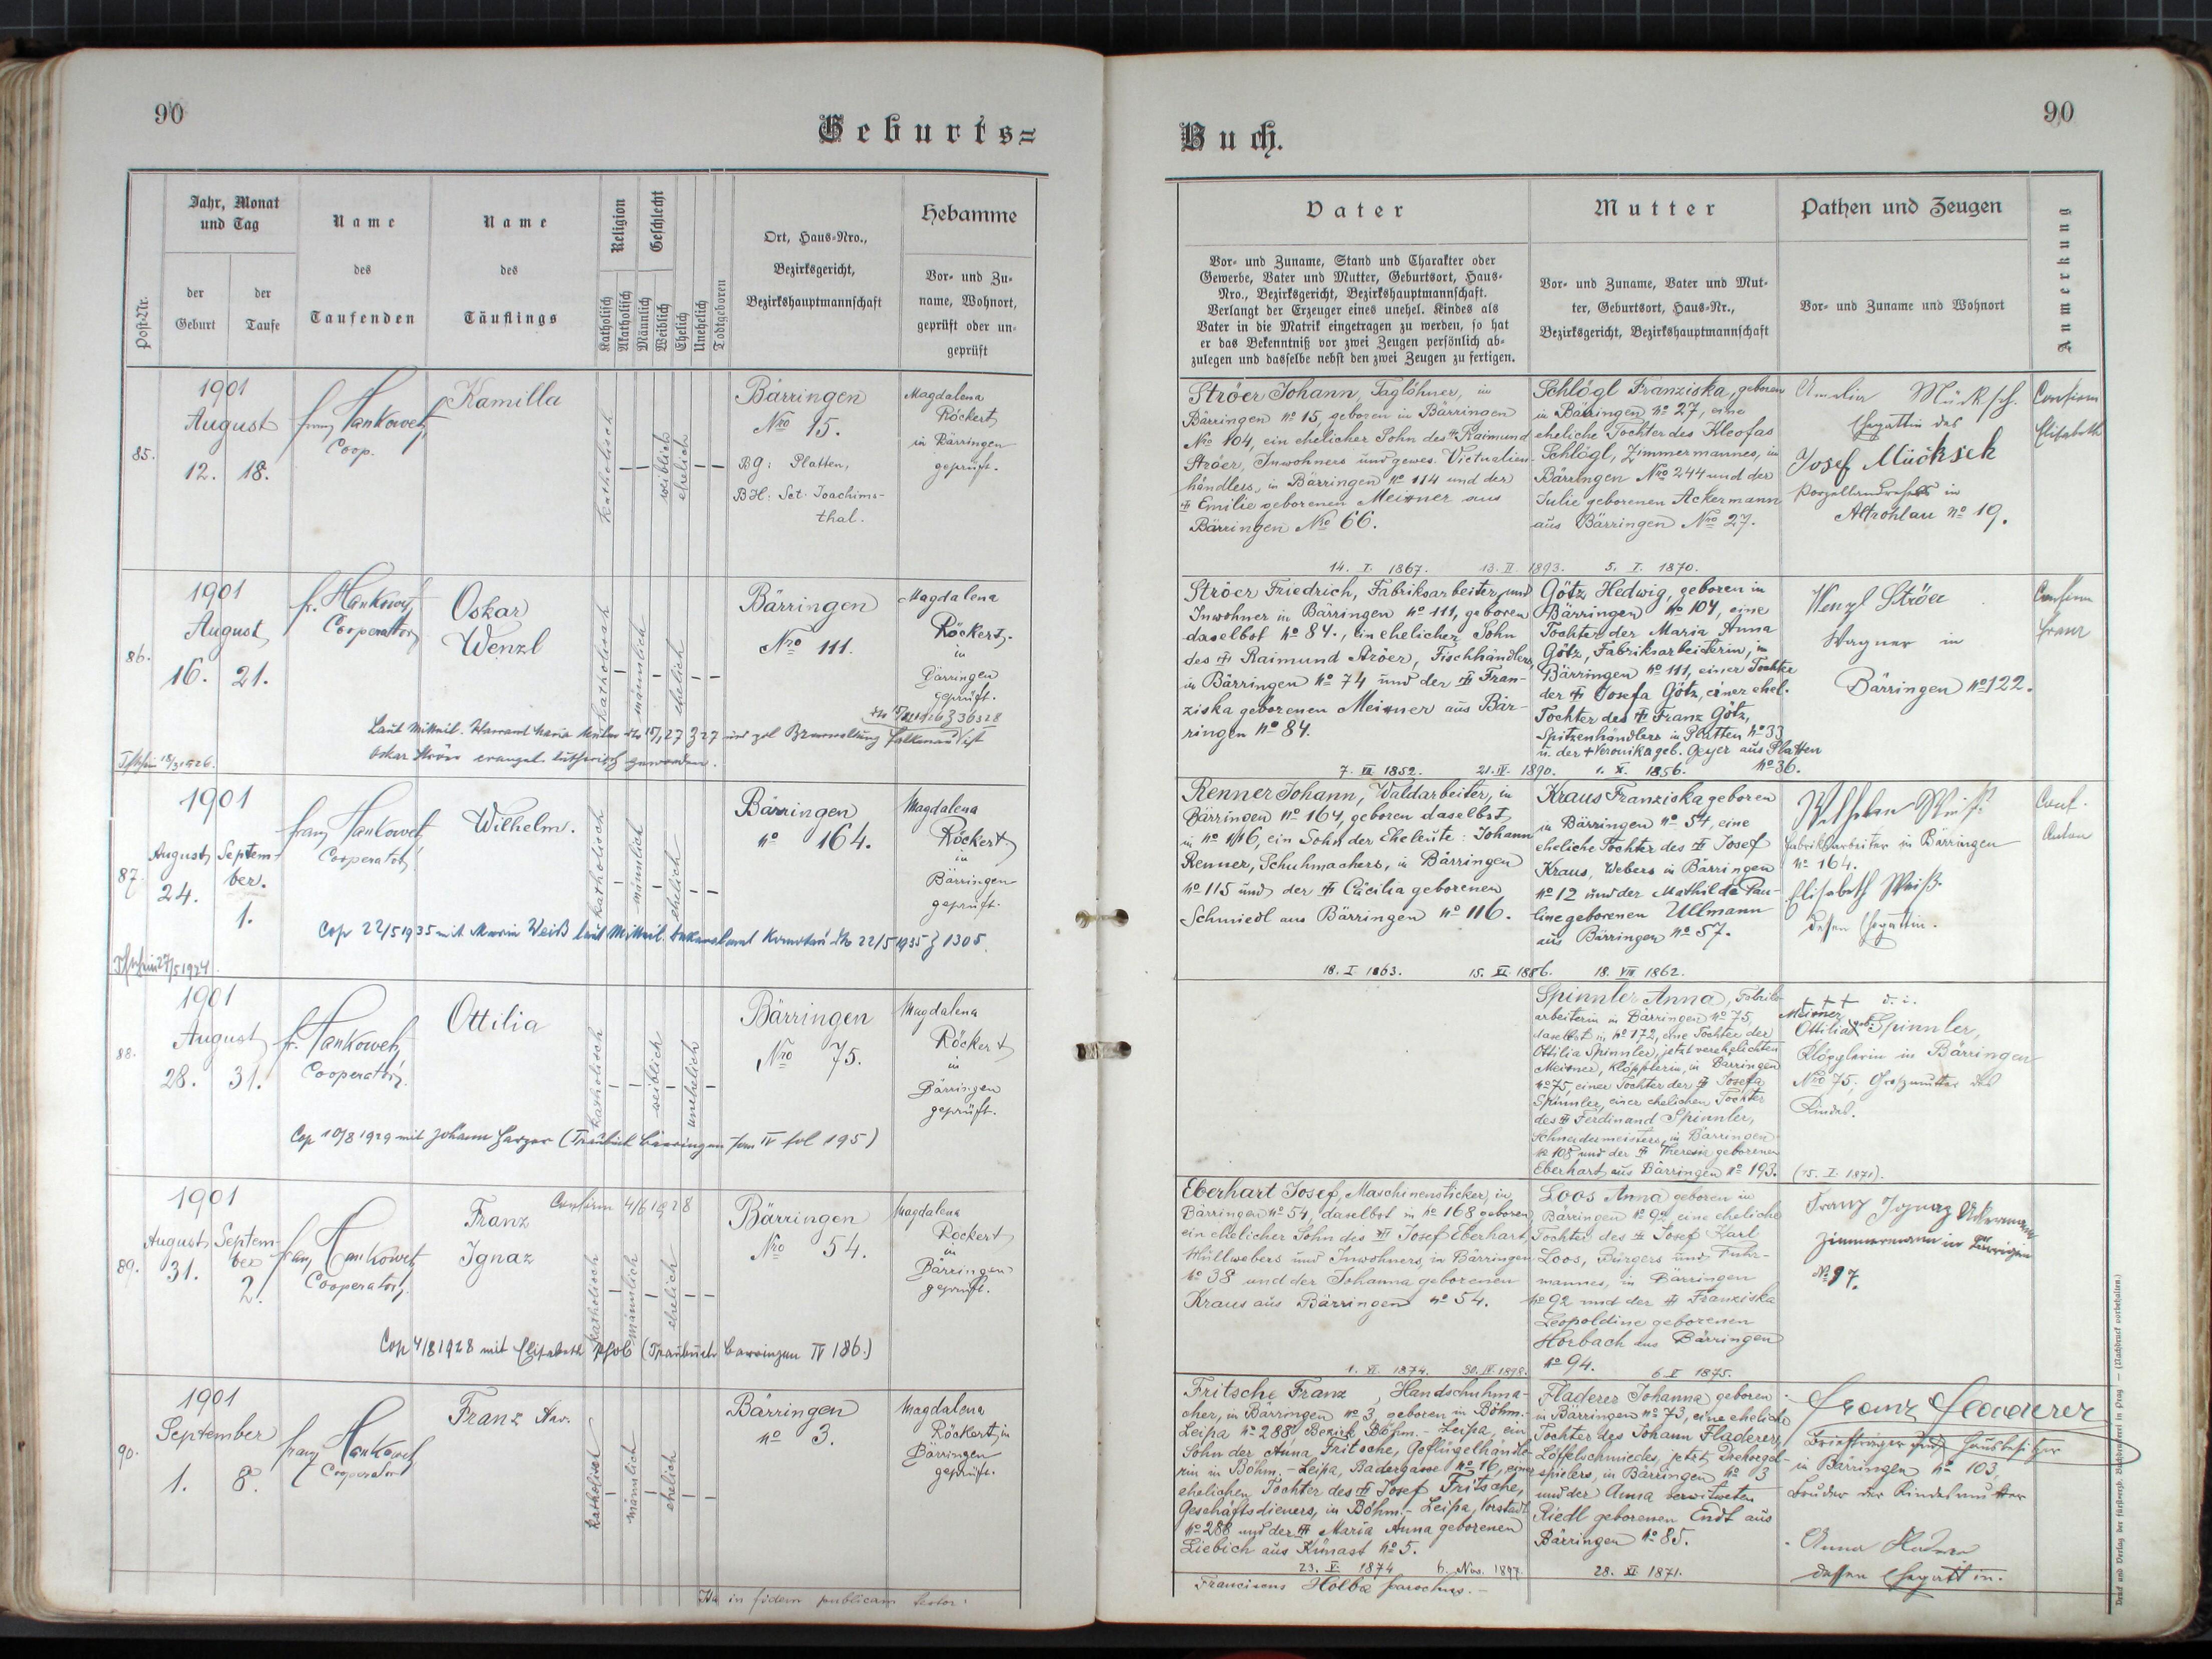 90
Geburts=
Post-Nr.
Jahr, Monat
und Tag
der
Geburt
der
Taufe
Name
des
Taufenden
Name
des
Täuflings
Religion
Katholisch
Akatholisch
Geschlecht
Männlich
Weiblich
Ehelich
Unehelich
Todtgeboren
Ort, Haus-Nro.,
Bezirksgericht,
Bezirkshauptmannschaft
Hebamme
Vor- und Zu-
name, Wohnort,
geprüft oder un-
geprüft
85.
1901
August
12. 18.
Coop.
Kamilla
katholisch
weiblich
ehelich
Bärringen
Nro 15.
BG: Platten,
BH: Sct. Joachims-
thal.
Magdalena
Röckert
in Bärringen
geprüft.
86.
1901
August
16. 21.
Cooperator
Oskar
Wenzl
katholisch
männlich
ehelich
Bärringen
Nro 111.
Magdalena
Röckert
in
Bärringen
geprüft.
Oskar Ströer evangel. lutherisch geworden.
87.
1901
August Septem-
ber.
24.
1.
Cooperator
Wilhelm.
katholisch
männlich
ehelich
Bärringen
No 164.
Magdalena
Röckert
in
Bärringen
geprüft.
Cop 22/5 1935 mit Maria Weiß laut Mitteil. Dekanalamt Komotau dto 22/5 1935 Z 1305.
88.
1901
August
28. 31.
Cooperator
Ottilia
katholisch
weiblich
unehelich
Bärringen
Nro 75.
Magdalena
Röckert
in
Bärringen
geprüft.
Cop 10/8 1929 mit Johann (Traubuch Bärringen tom IV fol 195)
89.
1901
August Septem-
ber
31.
2.
Cooperator
Franz
Ignaz
Confirm 4/6 1928
katholisch
männlich
ehelich
Bärringen
Nro 54.
Magdalena
Röckert
in
Bärringen
geprüft.
Cop 4/8 1928 mit Elisabeth (Traubuch Bärringen IV 186.)
90.
1901
September
1. 8.
Cooperator
Franz Xav.
katholisch
männlich
ehelich
Bärringen
No 3.
Magdalena
Röckert, in
Bärringen
geprüft.
Ita in fidem publicam testor:
90
Buch.
Vater
Vor- und Zuname, Stand und Charakter oder
Gewerbe, Vater und Mutter, Geburtsort, Haus-
Nro., Bezirksgericht, Bezirkshauptmannschaft.
Verlangt der Erzeuger eines unehel. Kindes als
Vater in die Matrik eingetragen zu werden, so hat
er das Bekenntniß vor zwei Zeugen persönlich ab-
zulegen und dasselbe nebst den zwei Zeugen zu fertigen.
Mutter
Vor- und Zuname, Vater und Mut-
ter, Geburtsort, Haus-Nr.,
Bezirksgericht, Bezirkshauptmannschaft
Pathen und Zeugen
Vor- und Zuname und Wohnort
Anmerkung
Ströer Johann, Taglöhner, in
Bärringen No 15, geboren in Bärringen
Nro 104, ein ehelicher Sohn des Raimund
Ströer, Inwohners und gewes. Victualien-
händlers, in Bärringen No 114 und der
Emilie geborenen Meixner aus
Bärringen No 66.
14. I. 1867. 13. II. 1893.
Schlögl Franziska, geboren
in Bärringen No 27, eine
eheliche Tochter des Kleofas
Schlögl, Zimmermannes, in
Bärringen Nro 244 und der
Julie geborenen Ackermann
aus Bärringen Nro 27.
5. I. 1870.
Amalia Mücksch.
Ehegattin des
Josef Mücksch
Porzellandrehers in
Altrohlau No 19.
Confirm
Elisabeth
Ströer Friedrich, Fabriksarbeiter und
Inwohner in Bärringen No 111, geboren
daselbst No 84., ein ehelicher Sohn
des Raimund Ströer, Fischhändlers,
in Bärringen No 74 und der Fran-
ziska geborenen Meixner aus Bär-
ringen No 84.
7. VII. 1852. 21. IV. 1890.
Götz Hedwig, geboren in
Bärringen No 104, eine
Tochter der Maria Anna
Götz, Fabriksarbeiterin, in
Bärringen No 111, einer Tochter
der Josefa Götz, einer ehel.
Tochter des Franz Götz,
Spitzenhändlers in Platten No 33
u. der + Veronika geb. Geyer aus Platten
No 36.
1. X. 1856.
Wenzl Ströer
Wagner in
Bärringen No 122.
Confirm
Franz
Renner Johann, Waldarbeiter, in
Bärringen No 164, geboren daselbst
in No 116, ein Sohn der Eheleute: Johann
Renner, Schuhmachers, in Bärringen
No 115 und der Cäcilia geborenen
Schmiedl aus Bärringen No 116.
18. I 1863. 15. XI. 1886.
Kraus Franziska geboren
in Bärringen No 54, eine
eheliche Tochter des Josef
Kraus, Webers in Bärringen
No 12 und der Mathilde Pau-
line geborenen Ullmann
aus Bärringen No 57.
18. VIII. 1862.
Wilhelm Weiß
Fabriksarbeiter in Bärringen
No 164.
Elisabeth Weiß
dessen Ehegattin.
Conf.
Anton
Spinnler Anna, Fabriks-
arbeiterin in Bärringen No 75,
daselbst in No 172, eine Tochter der
Ottilia Spinnler, jetzt verehelichten
Meixner, Klöpplerin, in Bärringen
No 75, einer Tochter der Josefa
Spinnler, einer ehelichen Tochter
des Ferdinand Spinnler,
Schneidermeisters, in Bärringen
No 108 und der Theresia geborenen
Eberhart aus Bärringen No 193.
(15. I. 1871).
+++ d. i.
Meixner
Ottilia geb. Spinnler,
Klöpplerin in Bärringen
Nro 75; Großmutter des
Kindes.
Eberhart Josef, Maschinensticker, in
Bärringen No 54, daselbst in No 168 geboren,
ein ehelicher Sohn des Josef Eberhart,
Müllwebers und Inwohners, in Bärringen
No 38 und der Johanna geborenen
Kraus aus Bärringen No 54.
1. VI. 1874. 30. IV. 1898.
Loos Anna geboren in
Bärringen No 92 eine eheliche
Tochter des Josef Karl
Loos, Bürgers und Fuhr-
mannes, in Bärringen
No 92 und der Franziska
Leopoldine geborenen
Horbach aus Bärringen
No 94.
6. I 1875.
Franz Ignaz Ackermann
Zimmermann in Bärringen
No 97.
Fritsche Franz, Handschuhma-
cher, in Bärringen No 3, geboren in Böhm.-
Leipa No 288, Bezirk Böhm.-Leipa, ein
Sohn der Anna Fritsche, Geflügelhändle-
rin in Böhm.-Leipa, Badergasse No 16, einer
ehelichen Tochter des Josef Fritsche,
Geschäftsdieners, in Böhm.-Leipa, Vorstadt
No 288 und der Maria Anna geborenen
Liebich aus Künast No 5.
23. V. 1874 6. Nov. 1897.
Fladerer Johanna geboren
in Bärringen No 73, eine eheliche
Tochter des Johann Fladerer,
Löffelschmiedes, jetzt Drehorgel-
spielers, in Bärringen No 3
und der Anna verwitweten
Riedl geborenen Endt aus
Bärringen No 85.
28. XI. 1871.
Franz Fladerer
Briefträger und Hausbesitzer
in Bärringen No 103,
Bruder der Kindesmutter
Anna Fladerer
dessen Ehegattin.
Franciscus Holba parochus.
Druck und Verlag der fürsterzb. Buchdruckerei in Prag. — (Nachdruck vorbehalten.)